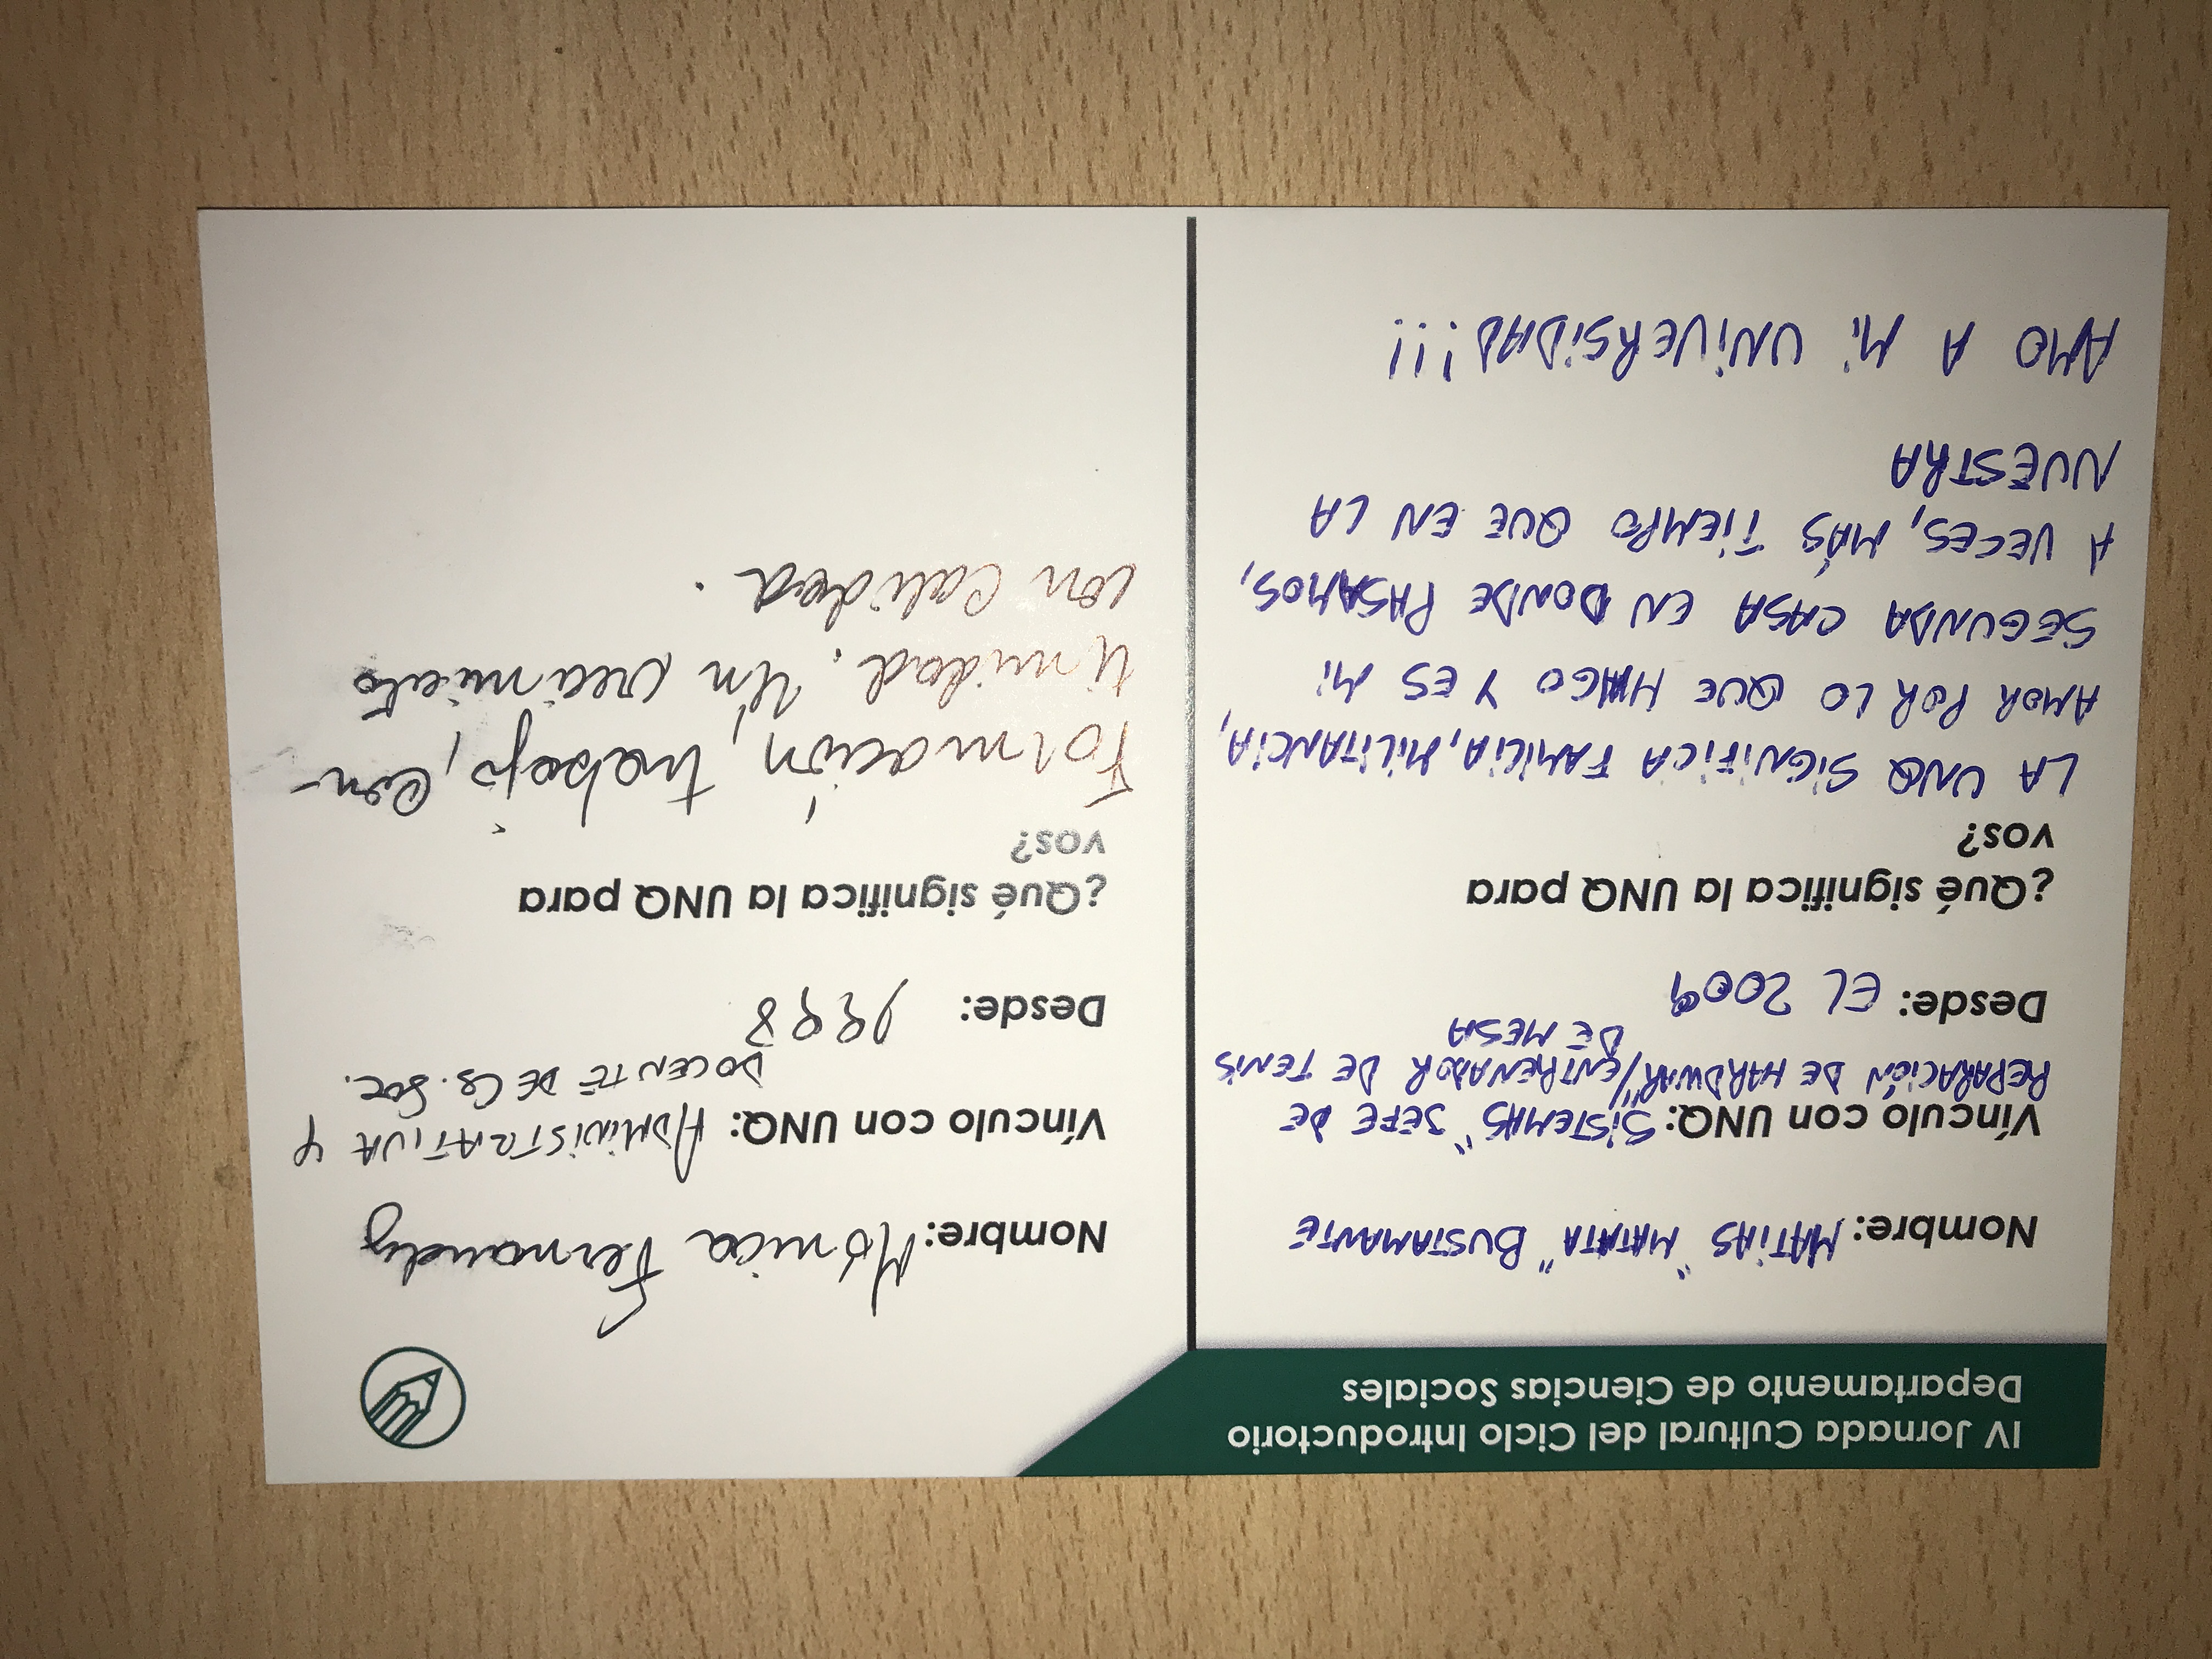 IV Jornada Cultural del Ciclo Introductorio
Departamento de Ciencias Sociales
Nombre: MATIAS "MATATA" BUSTAMANTE
Vínculo con UNQ: SISTEMAS "JEFE DE
REPARACIÓN DE HARDWAR"/ENTRENADOR DE TENIS
DE MESA
Desde: EL 2009
¿Qué significa la UNQ para
vos?
LA UNQ SIGNIFICA FAMILIA, MILITANCIA,
AMOR POR LO QUE HAGO Y ES MI
SEGUNDA CASA EN DONDE PASAMOS,
A VECES, MÁS TIEMPO QUE EN LA
NUESTRA
AMO A MI UNIVERSIDAD!!!
Nombre: Mónica Fernandez
Vínculo con UNQ: ADMINISTRATIVA Y
DOCENTE DE Cs. Soc.
Desde: 1998
¿Qué significa la UNQ para
vos?
Formación, trabajo, con-
tinuidad. Un crecimiento
con calidad.